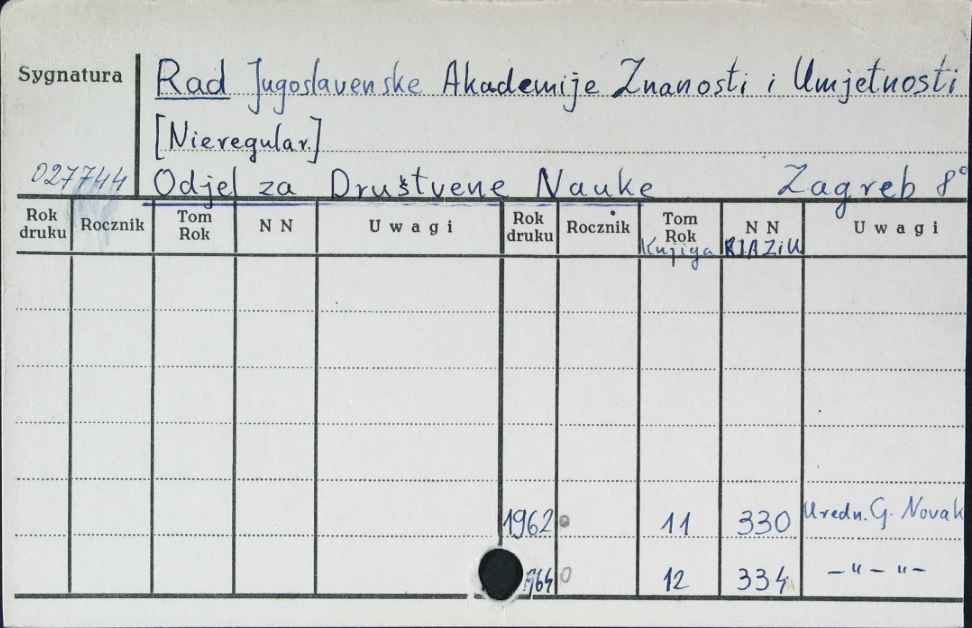 Sygnatura Rad Jugoslavenske Akademije Znanosti i Umjetnosti
[Nieregular.]
027744 Odjel za Društvene Nauke Zagreb 8°
Rok druku Rocznik Tom Rok N N Uwagi Rok druku Rocznik Tom Rok Knjiga N N Uwagi
1962 11 330 Uredn. G. Novak
964 12 334 –"– "–